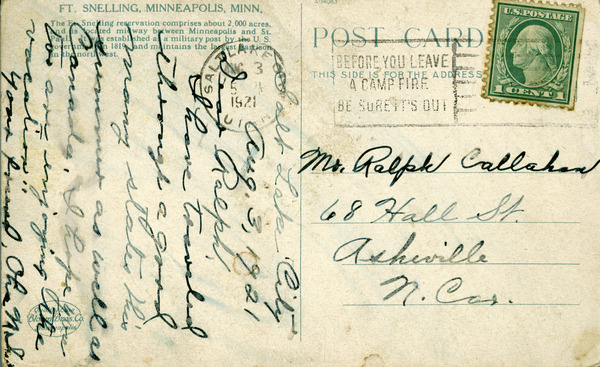 FT. SNELLING, MINNEAPOLIS, MINN.
The Ft. Snelling reservation comprises about 2,000 acres,
and is located midway between Minneapolis and St.
Paul. established as a military post by the U. S.
government 1819, and maintains the largest garrison
in the northwest.
POST CARD
THIS SIDE IS FOR THE ADDRESS
SALT LAKE
AUG 3
5
1921
UTAH
BEFORE YOU LEAVE
A CAMP FIRE
BE SURE IT'S OUT
U.S. POSTAGE
1 CENT 1
Mr. Ralph Callahan
68 Hall St.
Asheville
N. Car.
Salt Lake City
Aug. 3, 1921
Dear Ralph,
I have traveled
through a good
many states this
summer as well as
Canada. I hope
you are enjoying the
vacation.
Your friend,
Bloom Bros. Co.
Minneapolis